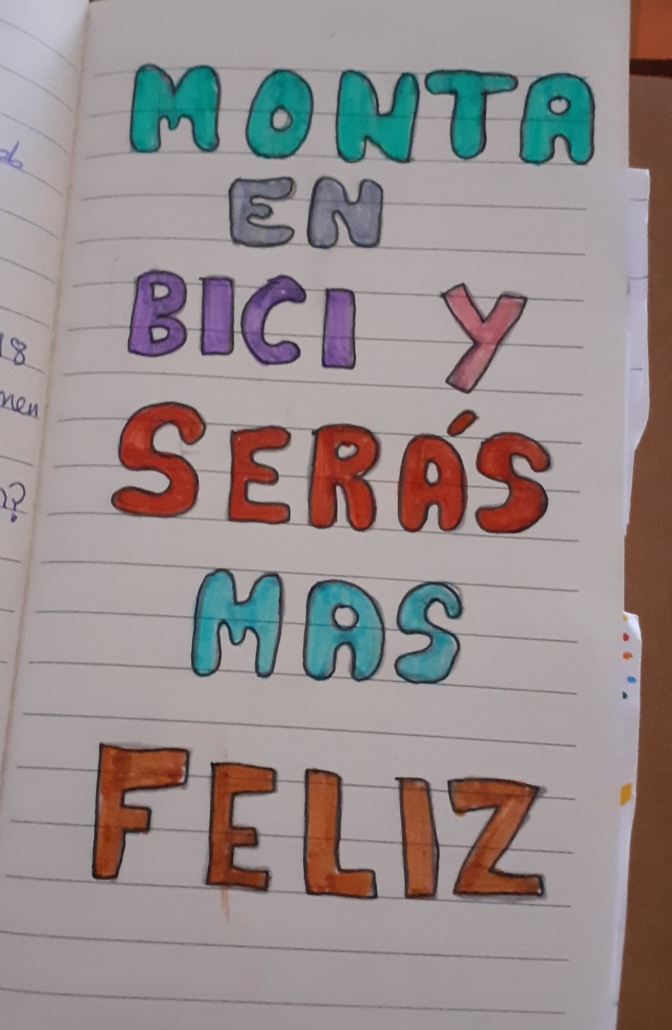 MONTA
EN
BICI Y
SERÁS
MAS
FELIZ
18
?